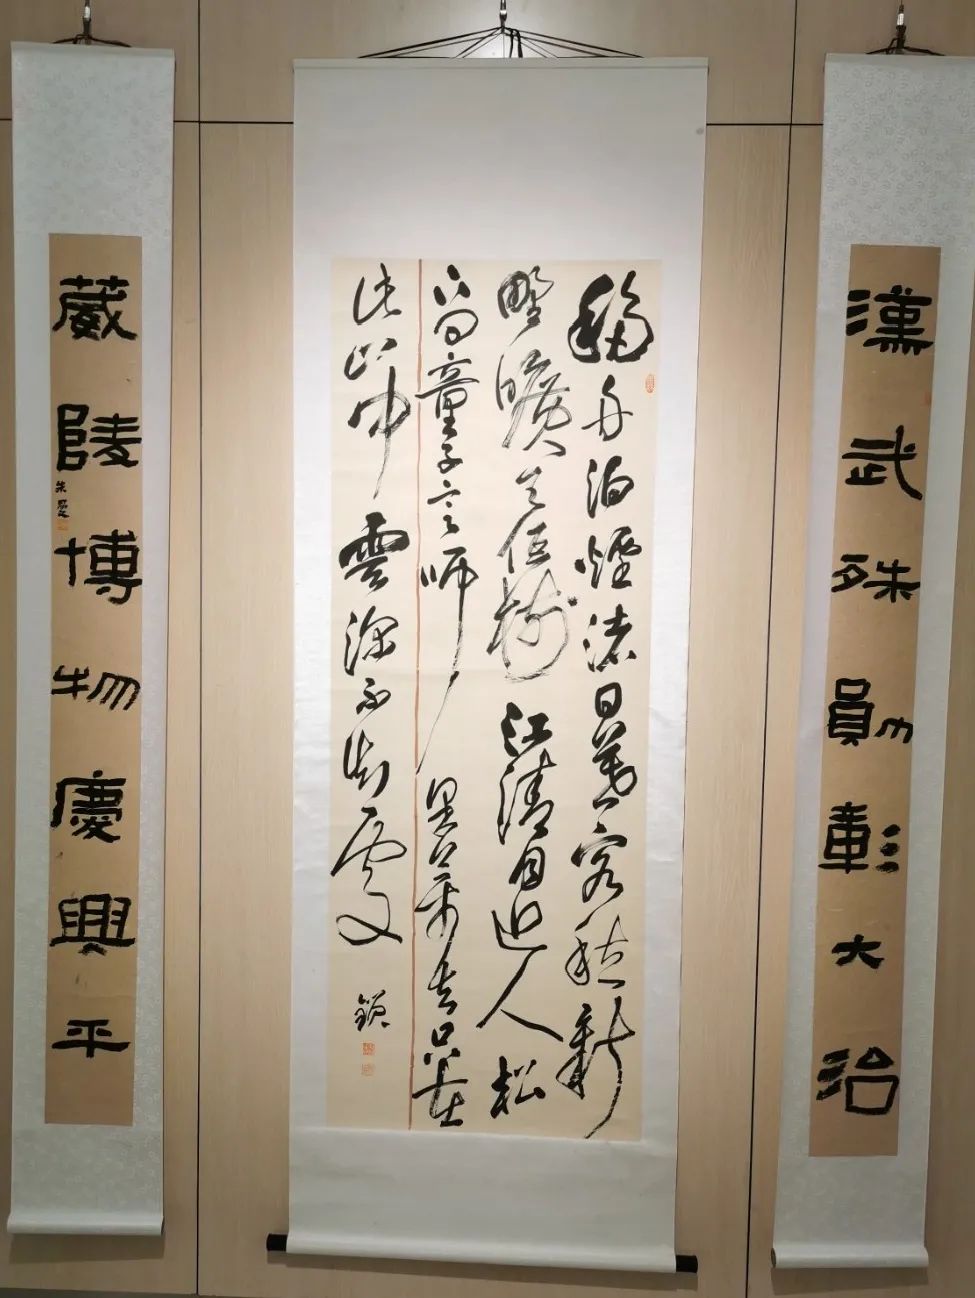 漢武殊勛彰大治
移舟泊煙渚日暮客愁新
野曠天低樹江清月近人松
下問童子言師采藥去只在
此山中雲深不知處
茂陵博物慶興平